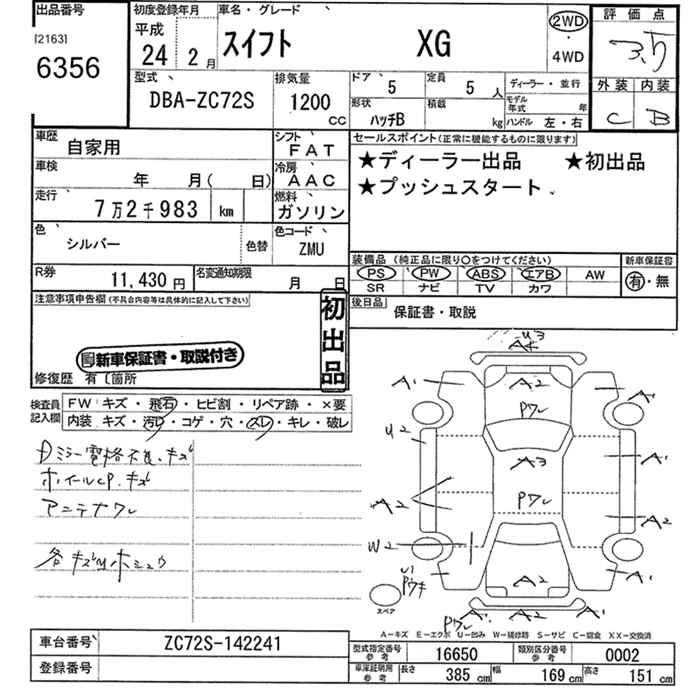 出品番号 初度登録年月 車名・グレード 評価点
[2163] 平成 2WD 3.5
6356 24年 2月 スイフト XG 4WD
外装 内装
C B
型式 排気量 ドア 5 定員 5人 ディーラー・並行
DBA-ZC72S 1200cc 形状 ハッチB 積載 kg モデル年式 年
ハンドル 左・右
車歴 自家用 シフト FAT セールスポイント(正常に機能するものに限ります)
車検 年 月( 日) 冷房 AAC ★ディーラー出品 ★初出品
走行 7万2千983 km 燃料 ガソリン ★プッシュスタート
色 シルバー 色替 色コード ZMU
装備品 (純正品に限り○をつけてください) 新車保証書
PS PW ABS エアB AW 有・無
SR ナビ TV カワ
R券 11,430円 名変通知期限 月 日
後日品 保証書・取説
注意事項申告欄(不具合内容等は具体的に記入して下さい)
初出品
新車保証書・取説付き
修復歴 有 [箇所
検査員記入欄 FW キズ・飛石・ヒビ割・リペア跡・×要
内装 キズ・汚レ・コゲ・穴・スレ・キレ・破レ
Dミラー電格不良、キズ
ホイールCP、キズ
アンテナワレ
U3
A4
A1 A2 A1
Pワレ
U2 A3 A1
A2 Pワレ A2
W2
A1 A2 A1
Pワレ
スペア
A−キズ E−エクボ U−凹み W−補修跡 S−サビ C−腐食 XX−交換済
車台番号 ZC72S-142241 型式指定番号 参考 16650 類別区分番号 参考 0002
登録番号 車庫証明用 参考 長さ 385cm 幅 169cm 高さ 151cm